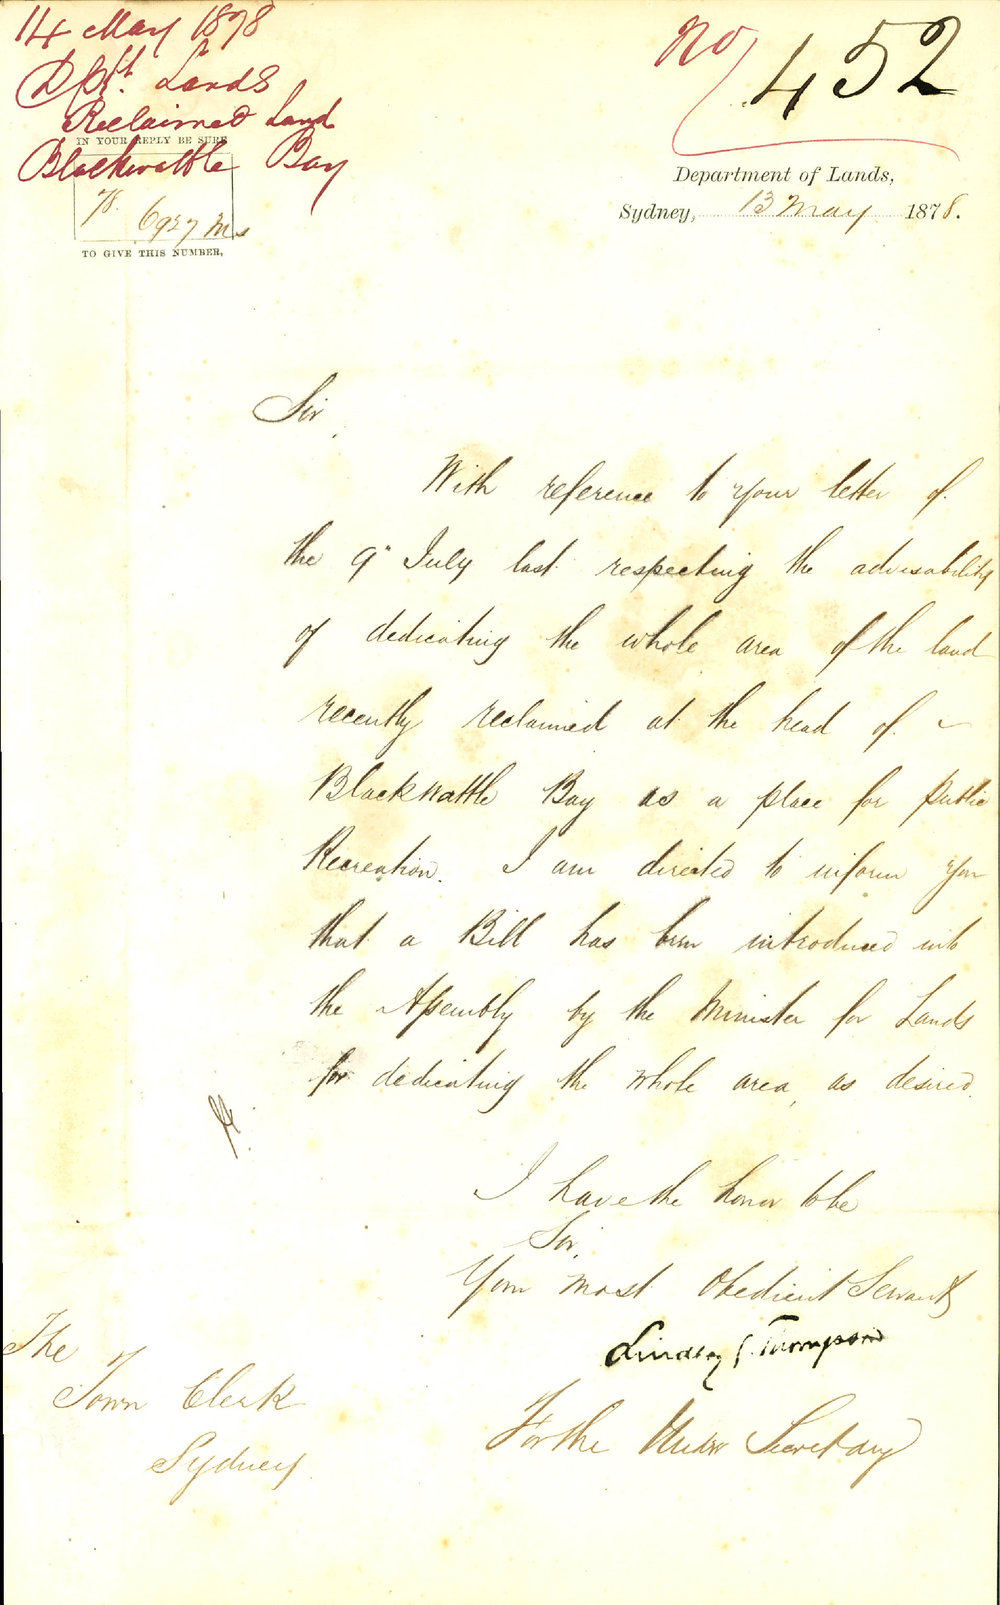 14 May 1878
Dpt. Lands
Reclaimed Land
Blackwattle Bay
IN YOUR REPLY BE SURE
78. 6927 Ms
TO GIVE THIS NUMBER,
No 452
Department of Lands,
Sydney, 13 May 1878.
Sir,
With reference to your letter of
the 9" July last respecting the advisability
of dedicating the whole area of the land
recently reclaimed at the head of
Blackwattle Bay as a place for Public
Recreation. I am directed to inform you
that a Bill has been introduced into
the Assembly by the Minister for Lands
for dedicating the whole area, as desired.
I have the honor to be
Sir,
Your most Obedient Servant
Lindsay G. Thompson
For the Under Secretary
The
Town Clerk
Sydney.